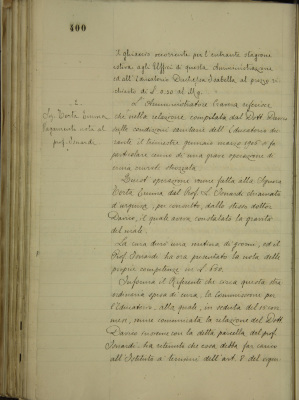 400
il ghiaccio occorrente per l'entrante stagione
estiva agli Uffici di questa Amministrazione
ed all'Educatorio Duchessa Isabella, al prezzo ri-
chiesto di £ 0.30 al Mg.
2.
Sig. Torta Emma
Pagamento nota al
prof. Isnardi.
L'Amministratore Gramma riferisce
che nella relazione compilata dal Dott. Daviso
sulle condizioni sanitarie dell'Educatorio du-
rante il trimestre gennaio marzo 1905 si fa
particolare cenno di una grave operazione di
ernia crurale strozzata.
Quest'operazione venne fatta alla Signora
Torta Emma dal Prof. L. Isnardi chiamato
d'urgenza, per consulto, dallo stesso dottor
Daviso, il quale aveva constatato la gravità
del male.
La cura durò una ventina di giorni, ed il
Prof. Isnardi ha ora presentato la nota delle
proprie competenze in £ 550.
Informa il Riferente che circa questa stra-
ordinaria spesa di cura, la Commissione per
l'Educatorio, alla quale, in seduta del 10 cor.
mese, venne comunicata la relazione del Dott.
Daviso insieme con la detta parcella del prof.
Isnardi, ha ritenuto che essa debba far carico
all'Istituto a termini dell'art. 8 del regola-